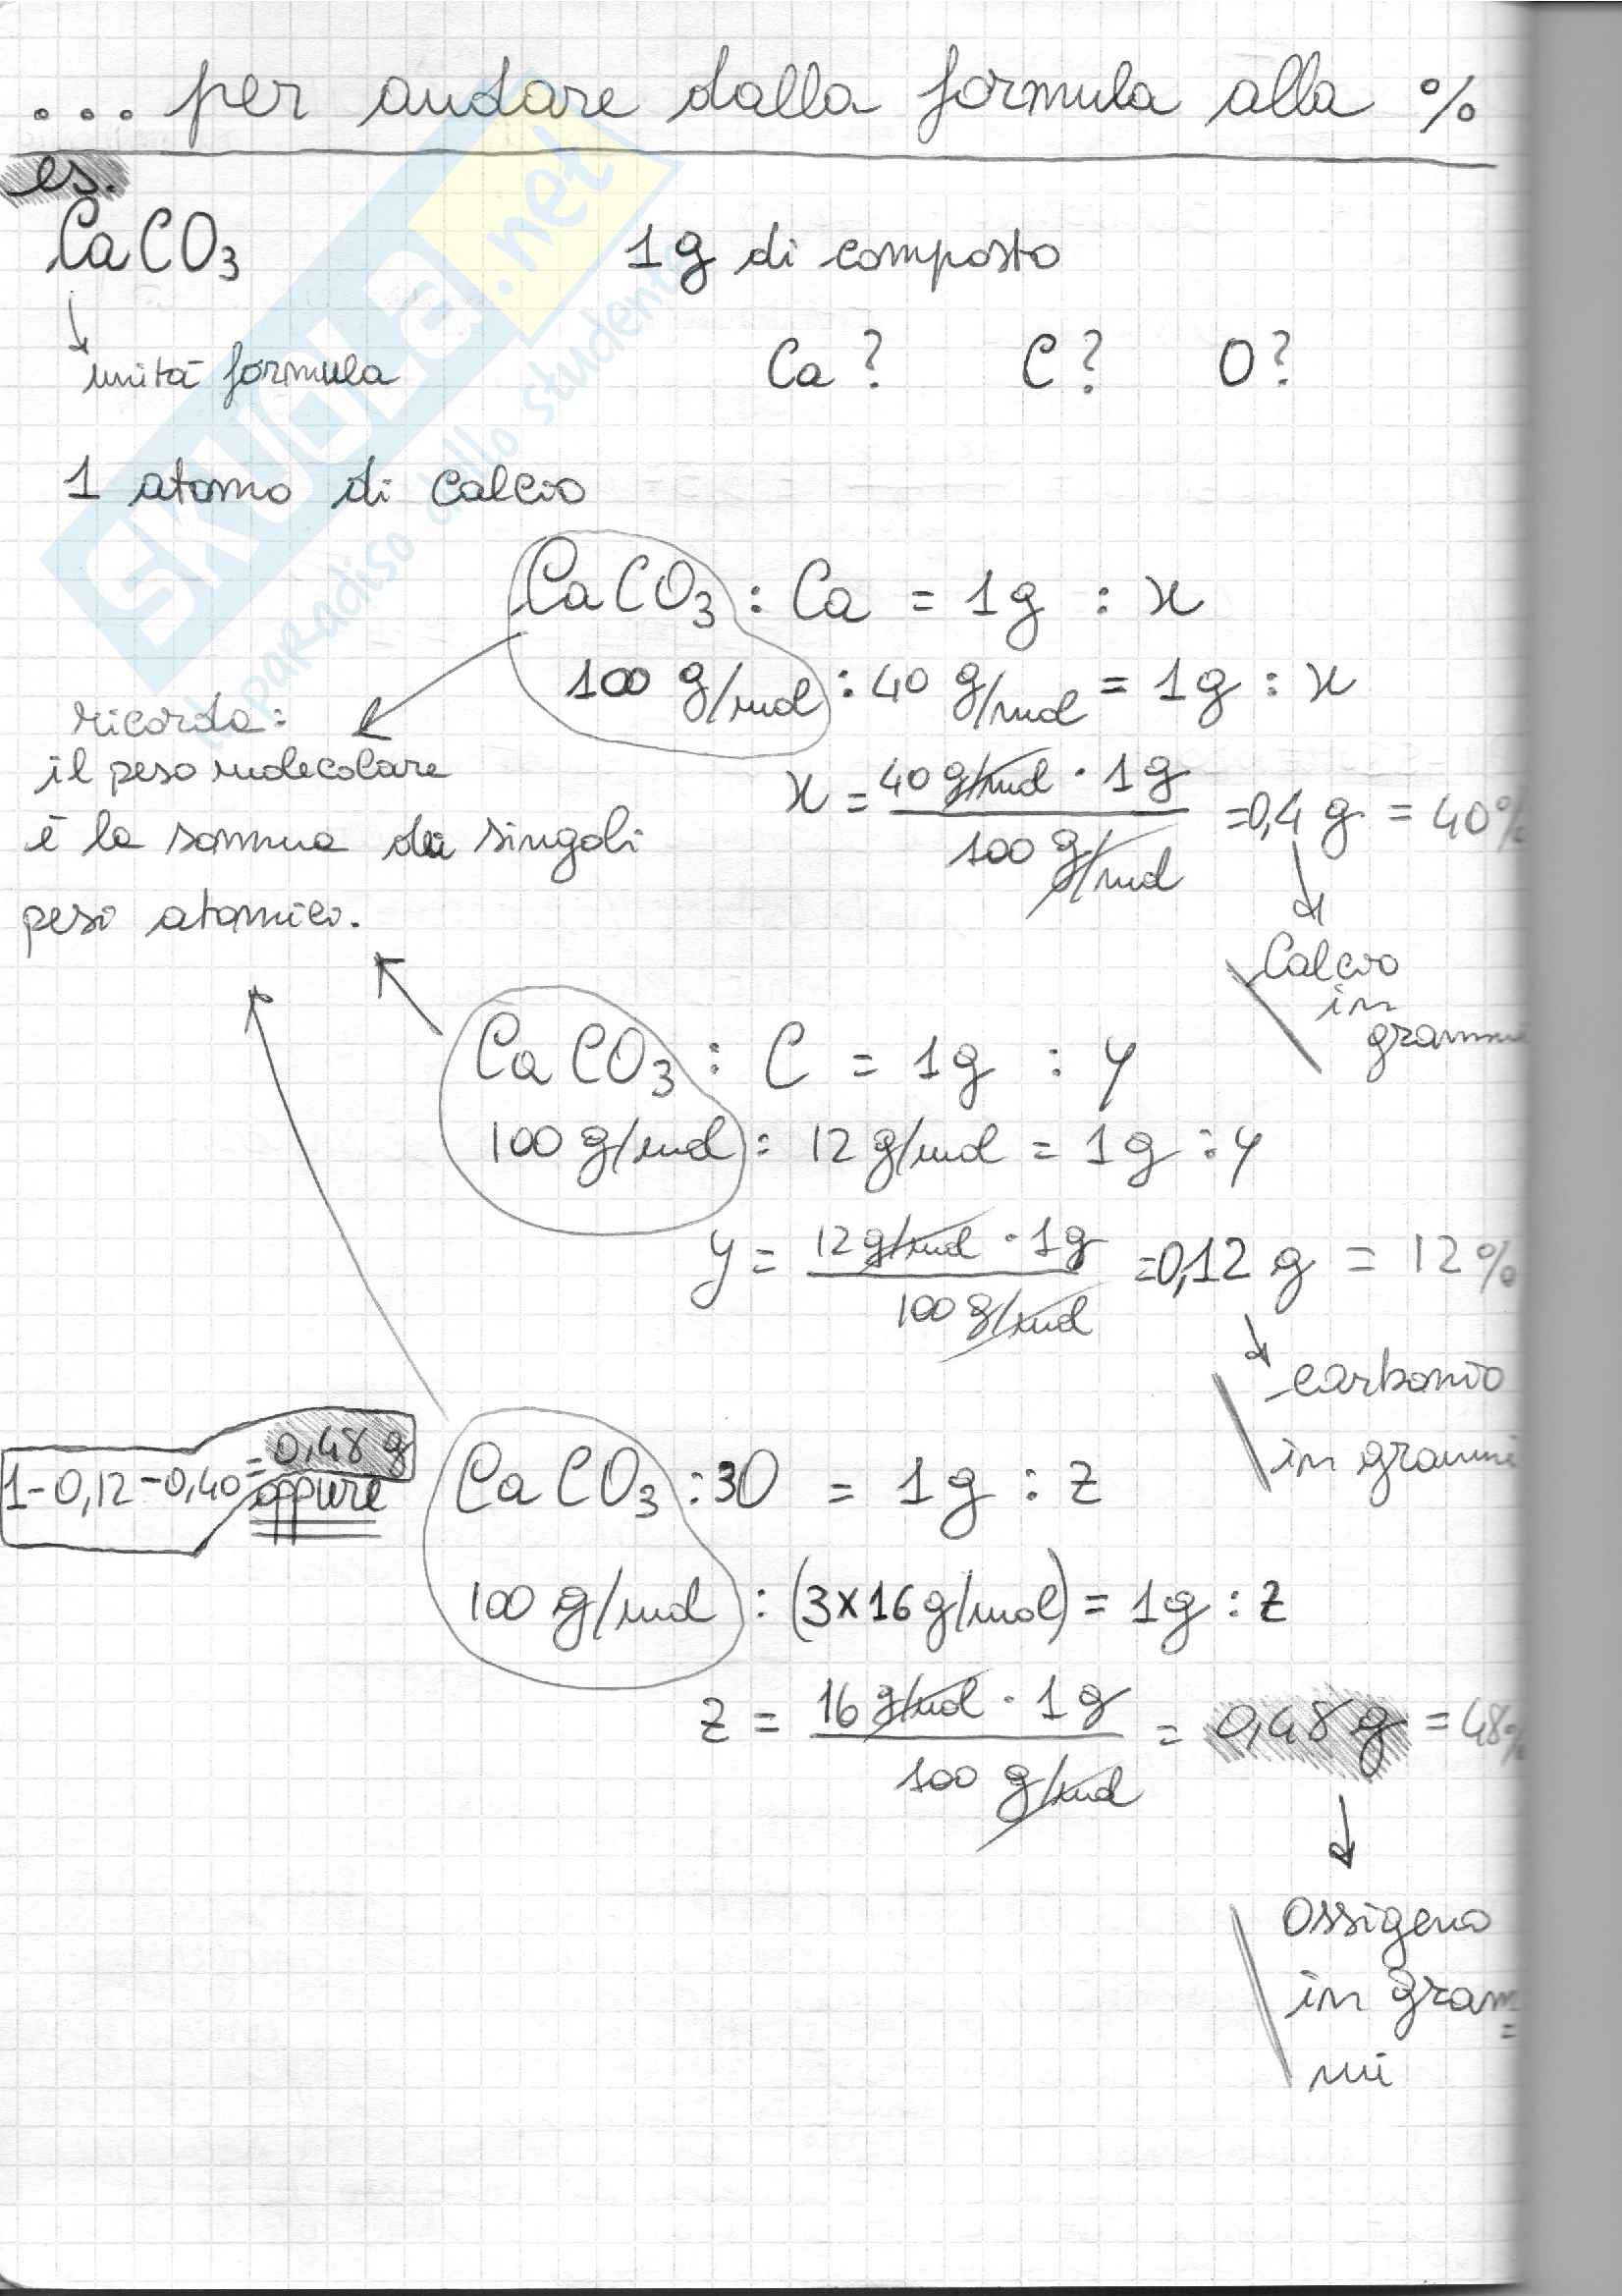 ... per andare dalla formula alla %
es.
CaCO3 1g di composto
unità formula Ca? C? O?
1 atomo di calcio
CaCO3 : Ca = 1g : x
100 g/mol : 40 g/mol = 1g : x
ricorda:
il peso molecolare
è la somma dei singoli
pesi atomici.
x = 40 g/mol · 1g / 100 g/mol = 0,4 g = 40%
Calcio
in
grammi
CaCO3 : C = 1g : y
100 g/mol : 12 g/mol = 1g : y
y = 12 g/mol · 1g / 100 g/mol = 0,12 g = 12%
carbonio
in grammi
1-0,12-0,40 = 0,48 g
oppure
CaCO3 : 3O = 1g : z
100 g/mol : (3x16 g/mol) = 1g : z
z = 16 g/mol · 1g / 100 g/mol = 0,48 g = 48%
Ossigeno
in gram=
mi
SKUOLA.net
il paradiso dello studente